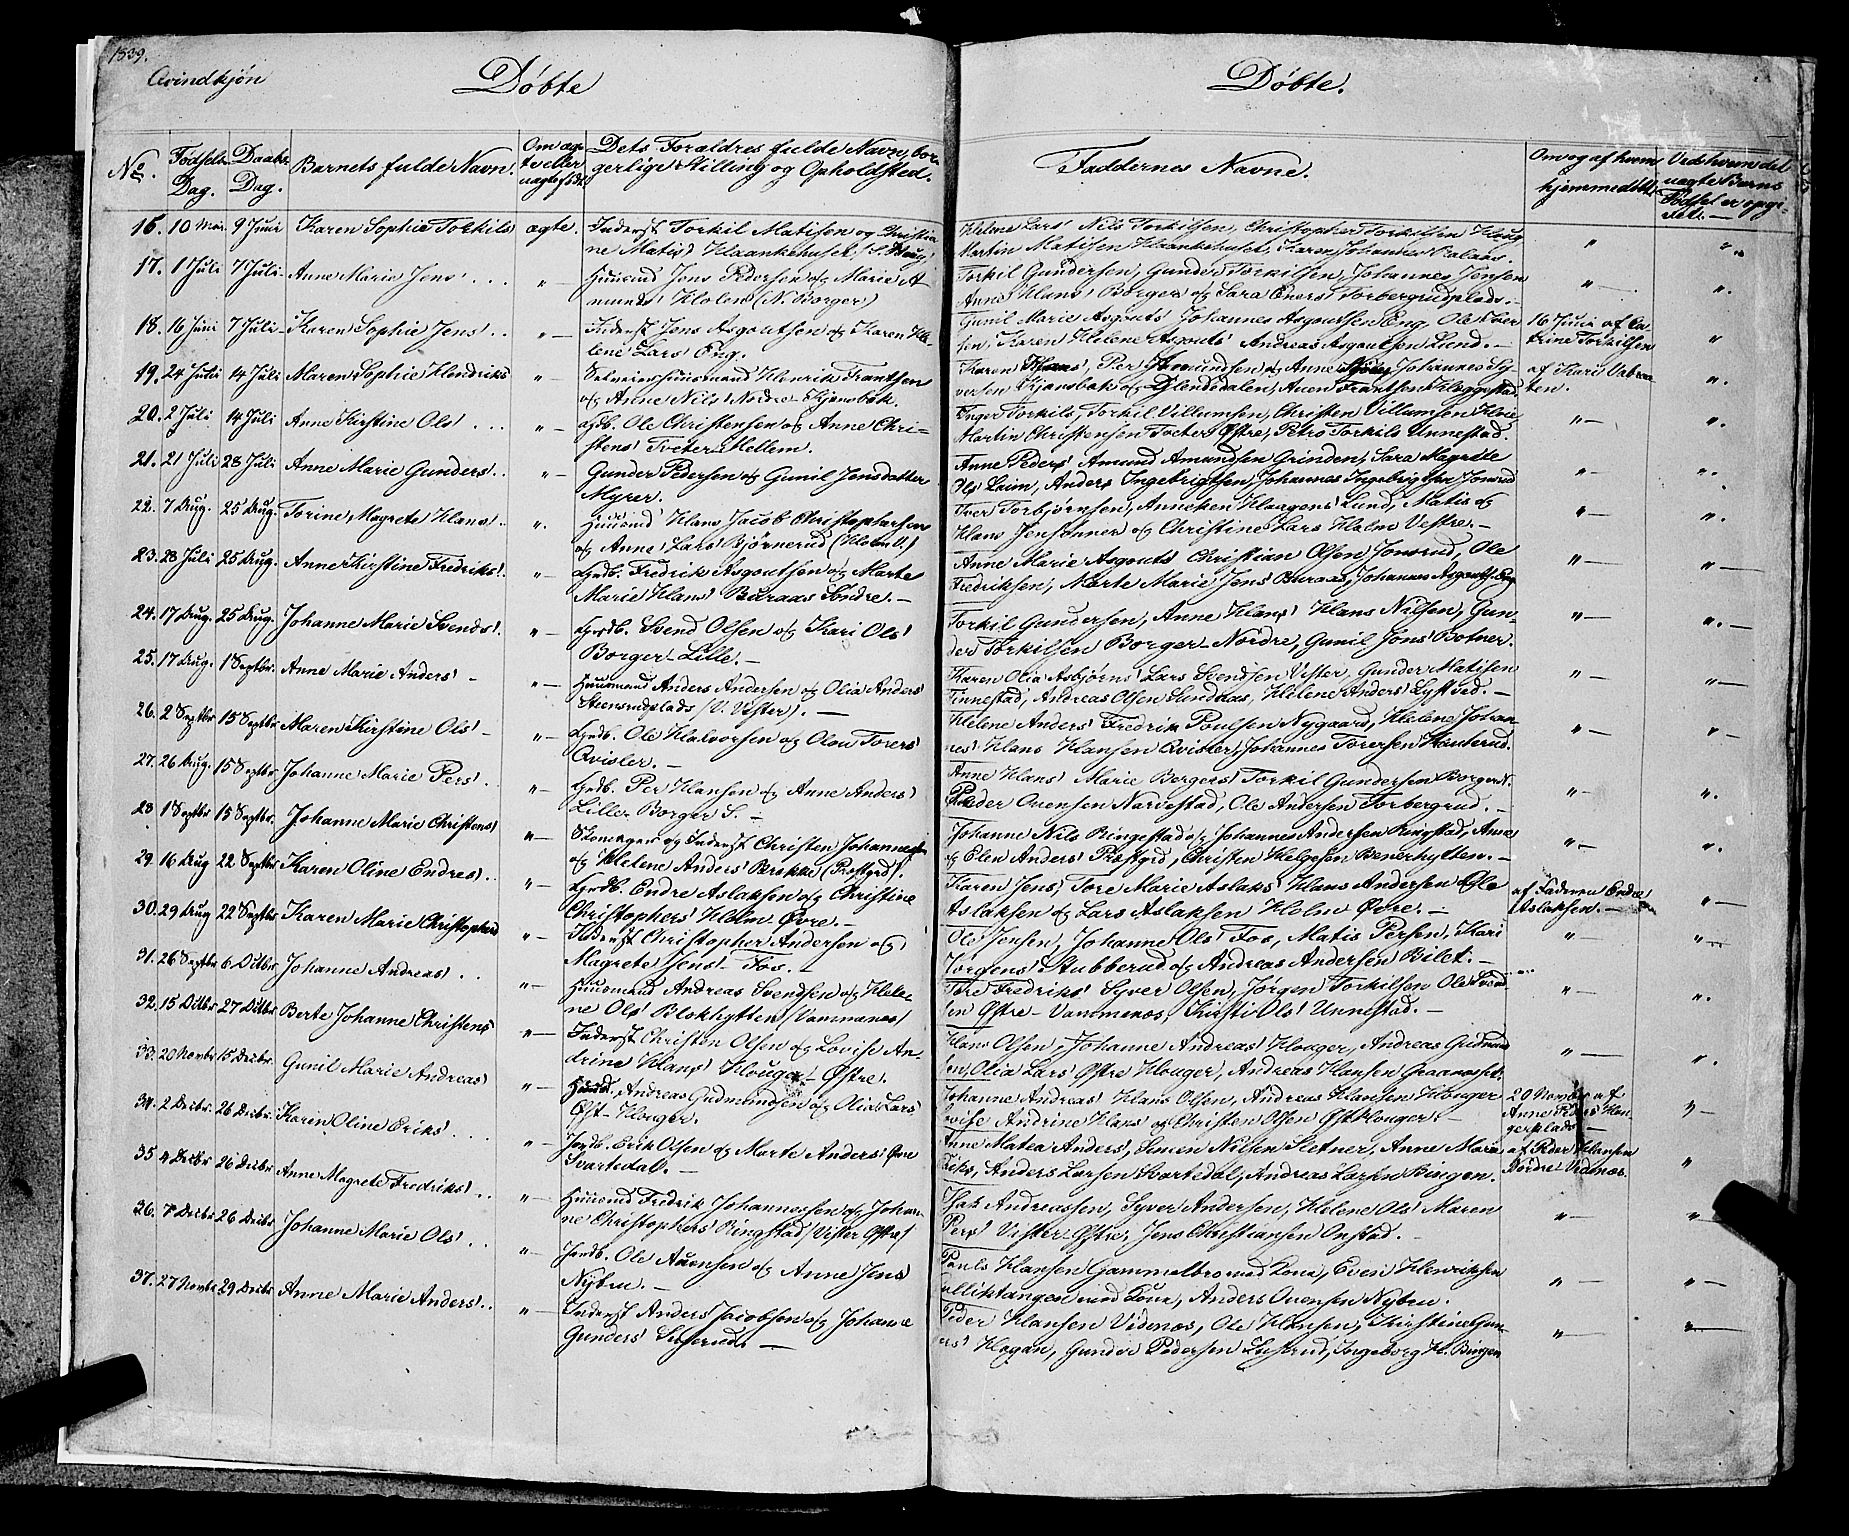 1839.
Qvindkjøn
Døbte
Døbte.
No.
Fødsels Dag.
Daabs Dag.
Barnets fulde Navn.
Om ægte eller uægte født
Dets Forældres fulde Navn, borgerlige Stilling og Opholdsted.
Faddernes Navne.
Om og af hvem hjemmedøbt
Ved hvem det uægte Barns Fødsel er opgivet. —
16. 10 Mai 9 Juni Karen Sophie Torkils' ægte. Inderst Torkil Matisen og Christiane Matis'
Helene Lars' Nils Torkilsen, Christopher Torkilsen
Martin Matisen Karen Johannes
17. 1 Juli 7 Juli Anne Marie Jens' " — Huusmd Jens Pedersen og Marie Amunds' Holen (N. Borger)
Torkil Gundersen, Gunder Torkilsen, Johannes Jensen
Anne Hans' Borger og Sara Torbergrudplads. —
18. 16 Juni 7 Juli Karen Sophie Jens' " — Inderst Jens Asgoutsen og Karen Helene Lars' Eng.
Gunil Marie Asgouts' Johannes Asgoutsen Eng, Ole Iversen, Karen Helene Asgouts' Andreas Asgoutsen Lund. —
16 Juni af Catrine Torkilsen
19. 24 Juni 14 Juli Maren Sophie Hendriks " — Selveierhuusmand Henrik Frantsen og Anne Nils' Nedre Kjønsbæk.
Karen Per Amundsen og Anne Johannes Syversen Kjønsbæk og Frantsen
af Kari
20. 2 Juli 14 Juli Anne Kirstine Ols' " — Gdb. Ole Christensen og Anne Christens' Tveter Mellem.
Inger Torkils, Torkil Villumsen, Christen Villumsen
Martin Christensen Tveter Østre, Petro Torkils Unnestad.
21. 21 Juli 28 Juli Anne Marie Gunders' " — Gunder Pedersen og Gunil Jensdatter Myrer.
Anne Peders' Amund Amundsen Grinden, Sara Magrete Ols' Anders Ingebrigtsen, Johannes Ingebrigtsen Jonsrud
22. 7 Aug. 25 Aug. Torine Magrete Hans' " Huusmd Hans Jacob Christophersen og Anne Lars' Bjørnerud (Holm V.)
Iver Torbjørnsen, Anneken Haagens' Lund, Matis og
Hans Jensønner og Christine Lars' Holm Vestre. —
23. 28 Juli 25 Aug. Anne Kirstine Fredriks' " — Gdb. Fredrik Asgoutsen og Marte Marie Hans' Søndre. —
Anne Marie Asgouts' Christian Olsen Jonsrud, Ole
Fredriksen, Marte Marie Jens' Johannes Asgouts. Eng
24. 17 Aug. 25 Aug. Johanne Marie Svends' " — Gdb. Svend Olsen og Kari Ols' Borger Lille. —
Torkil Gundersen, Anne Hans' Hans Nilsen, Gunder Torkilsen Borger Nordre, Gunil Jons' Botner.
25. 17 Aug. 1 Septbr. Anne Marie Anders' " — Huusmand Anders Andersen og Olia Anders' (V. Vister). —
Karen Olia Asbjørns Lars Svendsen Vister, Gunder Matisen
Finnestad, Andreas Olsen Sundaas, Helene Anders' —
26. 2 Septbr 15 Septbr Maren Kirstine Ols' " — Gdb. Ole Halvorsen og Olea Torers' Qvisler. —
Helene Anders' Fredrik Poulsen Nygaard, Helene Johannes' Hans Hansen Qvisler, Johannes Torersen
27. 26 Aug. 15 Septbr. Johanne Marie Pers' " — Gdb. Per Hansen og Anne Anders' Lille Borger S. —
Anne Hans' Marie Bergers' Torkil Gundersen Borger N.
Peder Ovensen Narvestad, Ole Andersen Torbergrud. —
28 1 Septbr 15 Septbr. Johanne Marie Christens' " — Skomager og Inderst Christen Johannesen og Helene Anders' Brække (Præstgrd).
Johanne Nils Ringestad og Johannes Andersen Ringstad, Anne
og Elen Anders' Præstgrd, Christen Helgesen —
29. 16 Aug 22 Septbr Karen Oline Endres' " — Gdb. Endre Aslaksen og Christine Christophers' Holm Øvre. —
Karen Jens', Tore Marie Aslaks' Hans Andersen Ole
Aslaksen og Lars Aslaksen Holm Øvre. —
af Faderen Endre Aslaksen. —
30. 29 Aug 22 Septbr Karen Marie Christophers " — Inderst Christopher Andersen og Magrete Jens' Fos. —
Ole Jensen, Johanne Ols' Fos, Matis Persen, Kari
Jørgens' Stubberud og Andreas Andersen Bilet. —
31. 26 Septbr 6 Octbr Johanne Andreas' " — Huusmand Andreas Svendsen og Helene Ols' Blakhytten (Vammenæs)
Tore Fredriks' Syver Olsen, Jørgen Torkilsen Ole Svendsen Østre Vammenæs, Kirsti Ols' Unnestad. —
32. 15 Octbr 27 Octbr Berte Johanne Christens' " — Inderst Christen Olsen og Lovise Andrine Hans' Houger Østre.
Hans Olsen, Johanne Andreas' Houger, Andreas Gudmundsen, Olia Lars' Østre Houger, Andreas Hansen
33. 20 Novbr 15 Decbr. Gunil Marie Andreas' " — Huusd. Andreas Gudmundsen og Olia Lars' Øst-Houger.
Johanne Andreas' Hans Olsen, Andreas Hansen Houger
Lovise Andrine Hans' og Christen Olsen Østhouger. —
20 Novber af Anne Peders' Hougerplads —
34. 2 Decbr. 26 Decbr. Karen Oline Eriks' " — Jordb. Erik Olsen og Marte Anders' Øvre Svartedal. —
Anne Matea Anders', Simen Nilsen Sletner, Anne Maria
Eriks, Anders Larsen Svartedal, Andreas Larsen Bingen.
af Peder Hansen Nordre Vidnæs.
35 4 Decbr 26 Decbr Anne Magrete Fredriks' " — Huusmd Fredrik Johannessen og Johanne Christophers' Ringstad (Vister Østre)
Isak Andreassen, Syver Andersen, Helene Ols' Maren
Pers' Vister Østre, Jens Christiansen Onstad. —
36. 7 Decbr 26 Decbr Johanne Marie Ols' " — Jordb. Ole Auensen og Anne Jens' Nyben. —
Pouls Hansen Gammelbro med Kone, Even Henriksen
med Kone, Anders Ouensen Nyben.
37. 27 Novbr 29 Decbr Anne Marie Anders' " — Inderst Anders Jacobsen og Johanne Gunders' —
Peder Hansen Vidnæs, Ole Hansen, Kirstine Gunders' Hagan, Gunder Pedersen Ingeborg H. Bingen